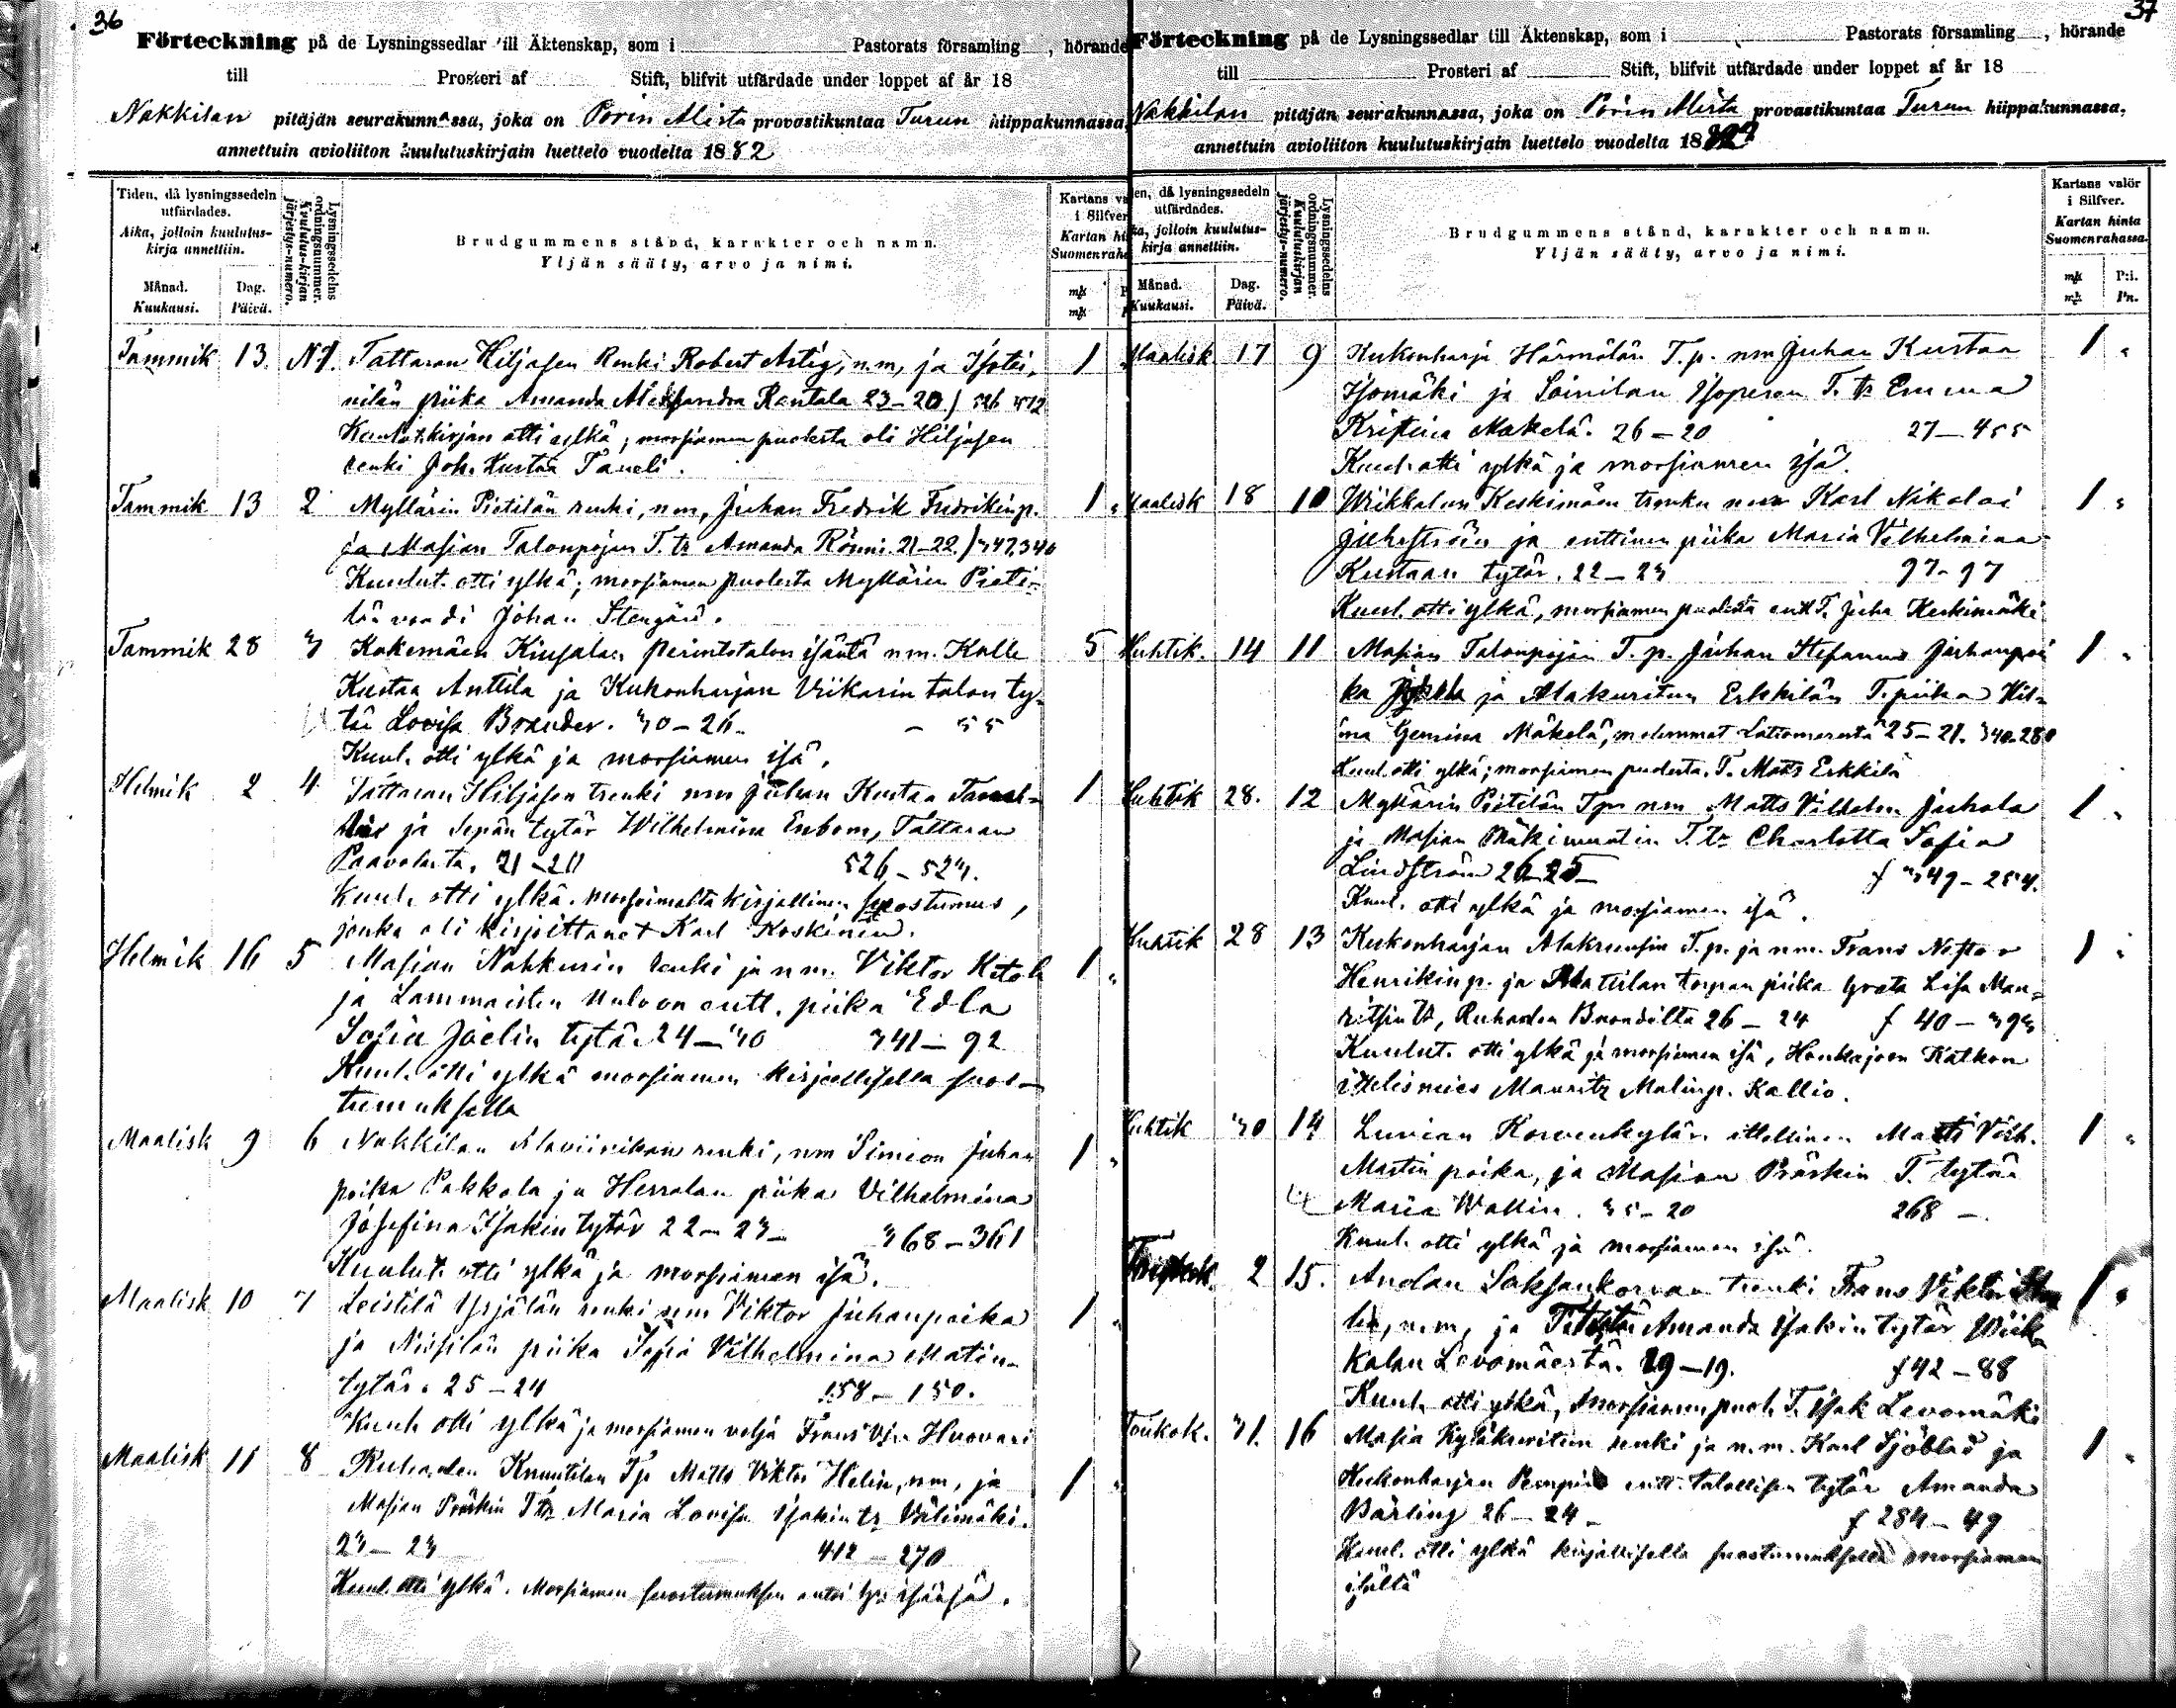 36
Förteckning på de Lysningssedlar till Äktenskap, som i Pastorats församling , hörande
till Prosteri af Stift, blifvit utfärdade under loppet af år 18
Nakkilan pitäjän seurakunnassa, joka on Porin Alista provastikuntaa Turun hiippakunnassa,
annettuin avioliiton kuulutuskirjain luettelo vuodelta 1882
Tiden, då lysningssedeln utfärdades.
Aika, jolloin kuulutus-kirja annettiin.
Månad. Dag.
Kuukausi. Päivä.
Lysningssedelns ordningsnummer.
Kuulutus-kirjan järjestys-numero.
Brudgummens stånd, karakter och namn.
Yljän sääty, arvo ja nimi.
Kartans va
i Silfver
Kartan hi
Suomenraha
Tammik 13. N1. Tattaran Hiljasen Renki Robert Artig, n.m, ja Isotei-
nilän piika Amanda Aleksandra Rantala 23-20) 526 512
Kuulut.kirjan otti ylkä; morsiamen puolesta oli Hiljasen
renki Joh. Kustaa Taneli.
Tammik 13 2 Myllärin Pietilän renki, nm, Juhan Fredrik Fredrikinp. 1
ja Masian Talonpojan T. tr Amanda Rönni. 21-22.) 347.340
Kuulut. otti ylkä; morsiamen puolesta Myllärin Pieti-
län vouti Johan Stengård.
Tammik 28 3 Kokemäen Kiusalan perintötalon isäntä nm. Kalle 5
Kustaa Anttila ja Kukonharjan Viikarin talon ty-
tär Lovisa Brander. 30-26. - 55
Kuul. otti ylkä ja morsiamen isä.
Helmik 2 4. Tattaran Hiljasen trenki nm Juhan Kustaa 1
ja Sepän tytär Wilhelmina Enbom, Tattaran
Paavolasta. 21-20 526-523.
Kuul. otti ylkä. morsiamelta kirjallinen suostumus,
jonka oli kirjoittanut Karl Koskinen.
Helmik 16 5 Masian Nahkurin renki ja nm. Viktor Ketola 1
ja Lammaisten entt. piika Edla
Sofia Joelin tytär 24-30 341-92
Kuul. otti ylkä morsiamen kirjallisella suos-
tumuksella
Maalisk 9 6 Nakkilan Alaviinikan renki, nm Simeon Juhan 1
poika Pakkala ja Herralan piika Vilhelmina
Josefina Isakin tytär 22-23- 368-361
Kuulut. otti ylkä ja morsiamen isä.
Maalisk 10 7 Leistilä Yrjälän renki nm Viktor Juhanpoika 1
ja piika Sofia Vilhelmina Matin-
tytär. 25-24 158-150.
Kuul. otti ylkä ja morsiamen veljä Frans Huovari
Maalisk 11 8 Ruhaden Knuutilan Tp Matts Viktor Helin, nm, ja 1
Masian Präskin T tr Maria Lovisa Isakin tr Välimäki.
23-23 412-270
Kuul. otti ylkä. Morsiamen suostumuksen antoi isänsä.
37
Förteckning på de Lysningssedlar till Äktenskap, som i Pastorats församling , hörande
till Prosteri af Stift, blifvit utfärdade under loppet af år 18
Nakkilan pitäjän seurakunnassa, joka on Porin Alista provastikuntaa Turun hiippakunnassa,
annettuin avioliiton kuulutuskirjain luettelo vuodelta 1882
en, då lysningssedeln utfärdades.
ka, jolloin kuulutus-kirja annettiin.
Månad. Dag.
Kuukausi. Päivä.
Lysningssedelns ordningsnummer.
Kuulutuskirjan järjestys-numero.
Brudgummens stånd, karakter och namn.
Yljän sääty, arvo ja nimi.
Kartans valör
i Silfver.
Kartan hinta
Suomenrahassa.
mk P:i.
mk. Pn.
Maalisk 17 9 Kukonharja Härmälän T.p. nm Juhan Kustaa 1
Isomäki ja Soinilan Isoperen T. tr Emma
Kristina Mäkelä. 26-20 27-455
Kuul. otti ylkä ja morsiamen isä.
Maalisk 18 10 Wiikkalan Keskimäen trenki nm Karl Nikolai 1
Juhström ja enttinen piika Maria Vilhelmina
Kustaan tytär. 22-23 97-97
Kuul. otti ylkä, morsiamen puolesta entt T. Juha Keskimäki
Huhtik. 14 11 Masian Talonpojan T.p. Juhan Stefanus Juhanpoi 1
ka ja Alakuritun Erkkilän T. piika Hil-
ma Gemina Mäkelä, molemmat Lattomerestä 25-21. 340-280
Kuul. otti ylkä; morsiamen puolesta T. Matts Erkkilä
Huhtik 28. 12 Myllärin Pietilän Tp nm Matts Vilhelm Juhola 1
ja Masian T. tr Charlotta Sofia
Lindström 26-25- f 349-254.
Kuul. otti ylkä ja morsiamen isä.
Huhtik 28 13 Kukonharjan T.p. ja nm. Frans Nestor 1
Henrikinp. ja Mattilan torpan piika Greta Lisa Mau-
ritsin tr, Ruhaden Brandilta 26-24 f 40-393
Kuulut. otti ylkä ja morsiamen isä, Honkajoen Katkon
itselismies Mauritz Malinp. Kallio.
Huhtik 30 14 Luvian Korvenkylän ittellinen Matti Vilh. 1
Martin poika, ja Masian Präskin T. tytär
Maria Wallin. 35-20 268 -.
Kuul. otti ylkä ja morsiamen isä.
2 15. Andan Saksankorvan trenki Frans Viktor 1
nm, ja Amanda Isakin tytär Wiik
kalan Levomäestä. 29-19. f 42-88
Kuul. otti ylkä, morsiamen puol. T. Isak Levomäki
Toukok. 31. 16 Masia Kyläkuritun renki ja n.m. Karl Sjöblad ja 1
Kukonharjan entt. talollisen tytär Amanda
Bärling 26-24- f 284-49
Kuul. otti ylkä kirjallisella suostumuksella morsiamen
isältä